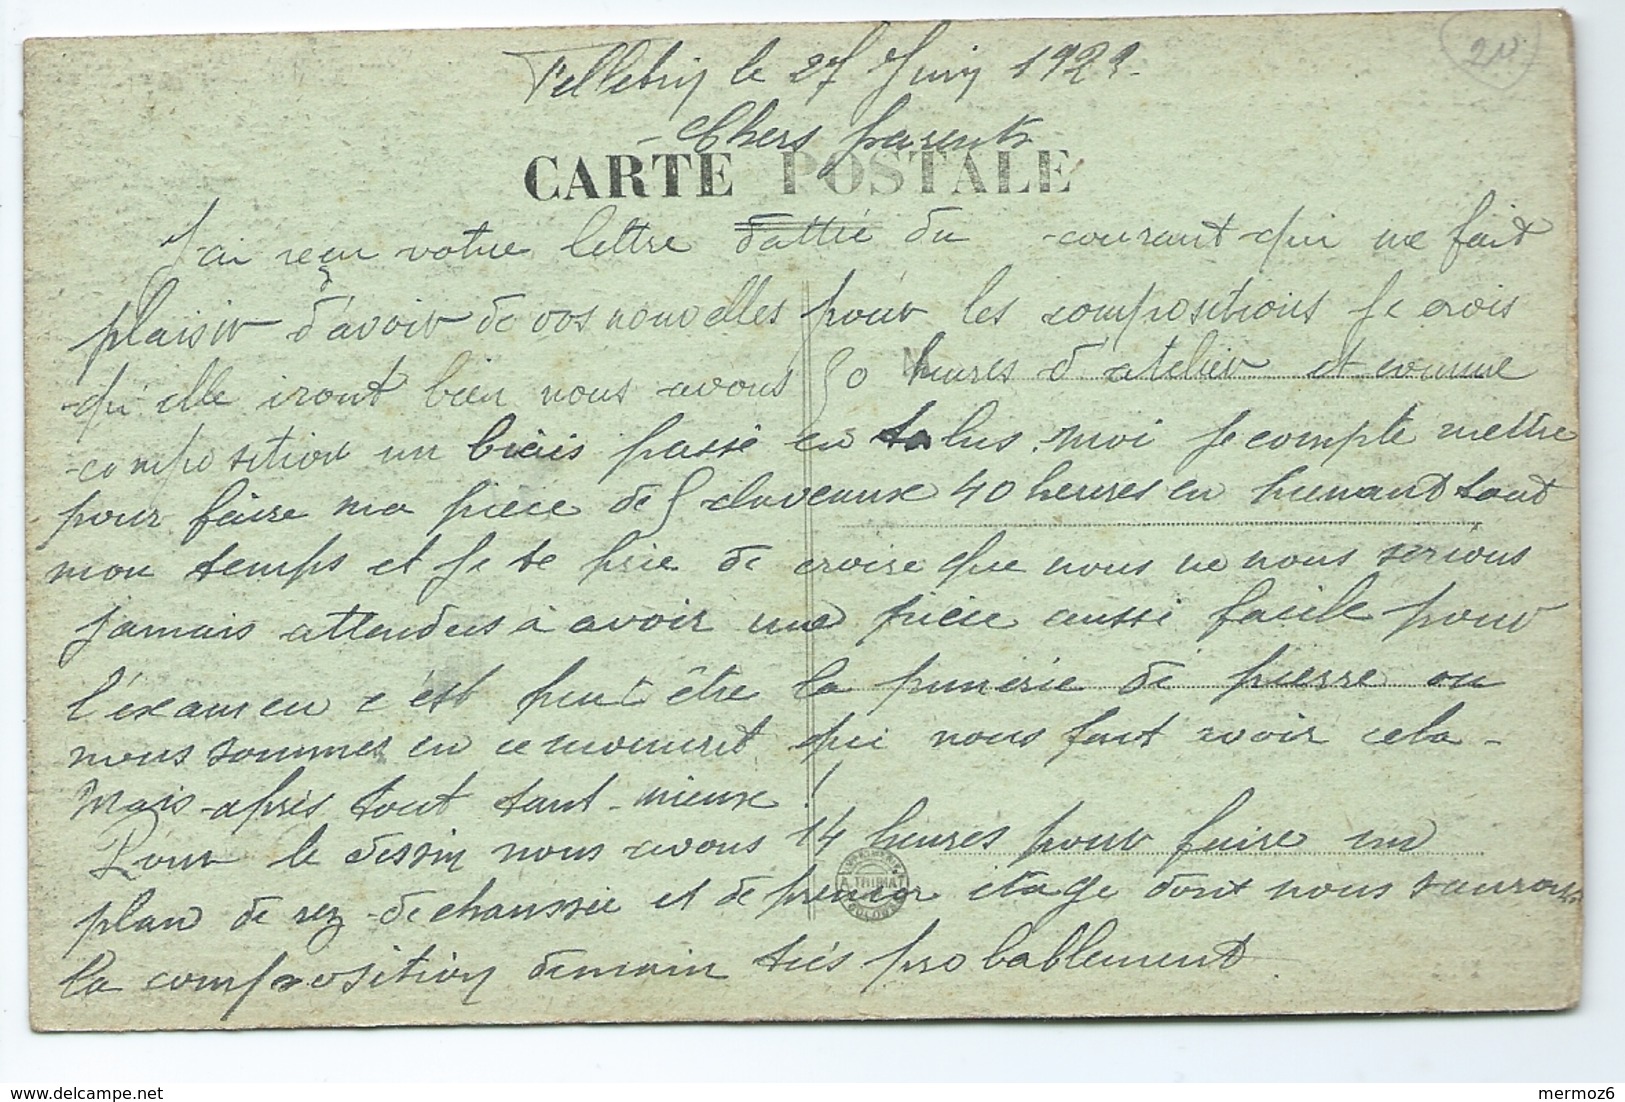 Felletin le 27 Juin 1922.
20
Chers parents
CARTE POSTALE
J'ai reçu votre lettre dattée du courant qui me fait
plaisir d'avoir de vos nouvelles pour les compositions Je crois
qu'elle iront bien nous avons 50 heures d'atelier et comme
composition un biais passé en talus. Moi Je compte mettre
pour faire ma pièce de 5 claveaux 40 heures en prenant tout
mon temps et Je te prie de croire que nous ne nous serions
jamais attendus à avoir une pièce aussi facile pour
l'éxamen c'est peut être la pénurie de pierre ou
nous sommes en ce moment qui nous fait avoir cela -
Mais après tout tant-mieux !
Pour le dessin nous avons 14 heures pour faire un
plan de rez-de-chaussée et de premier étage dont nous saurons
la composition demain très probablement.
IMPRIMERIE
A. THIRIAT
TOULOUSE
delcampe.net
mermoz6